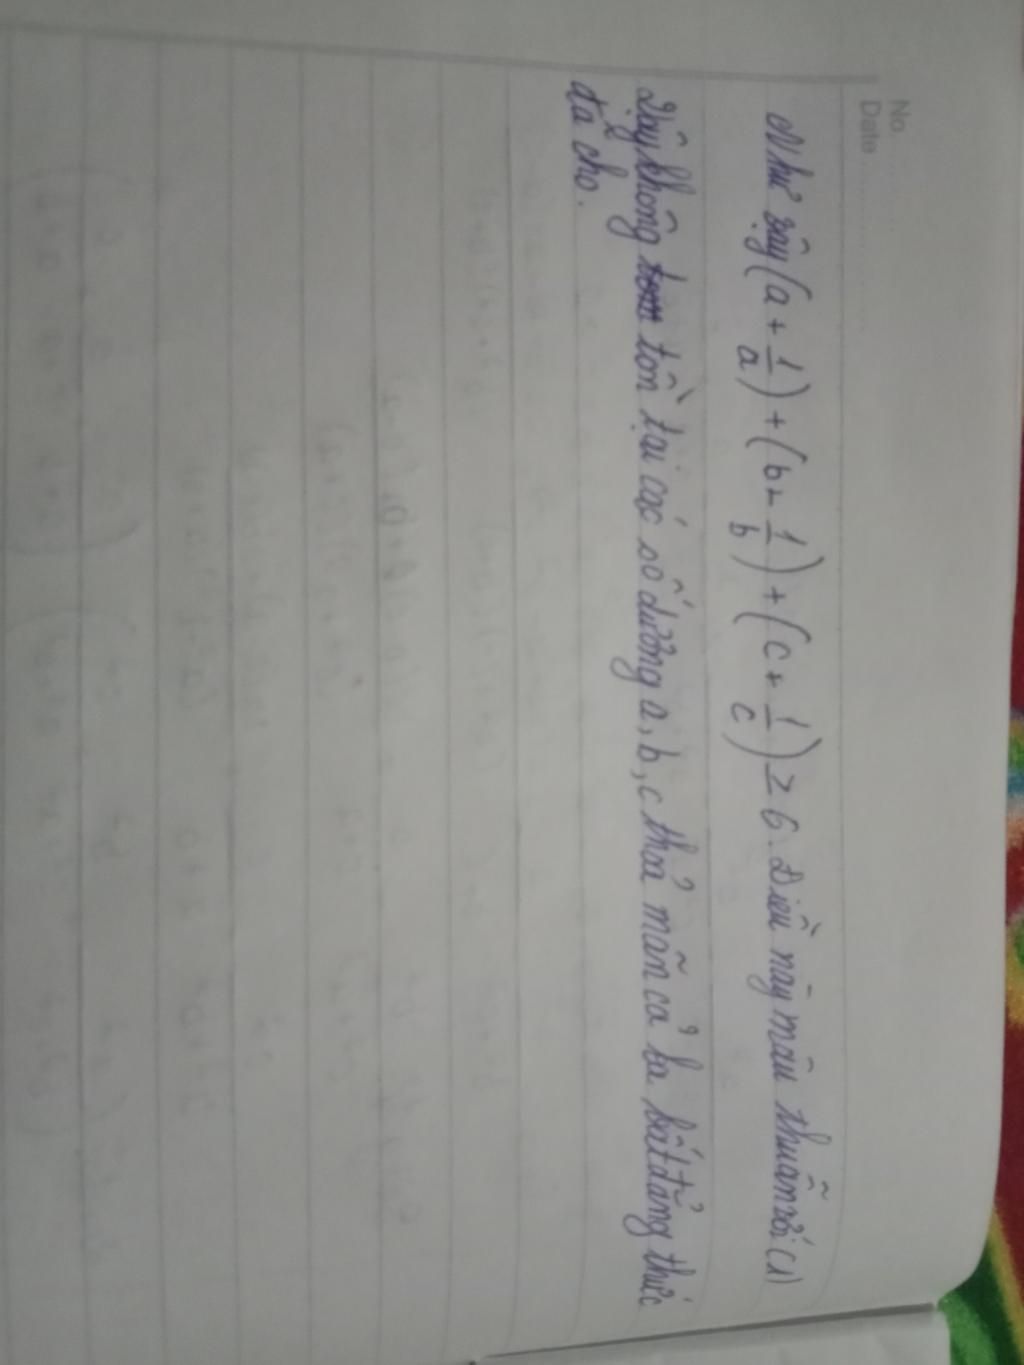 No.
Date
Như vậy (a + 1/a) + (b + 1/b) + (c + 1/c) ≥ 6. Điều này mâu thuẫn với (1)
Vậy không tồn tại các số dương a, b, c thỏa mãn cả ba bất đẳng thức
đã cho.